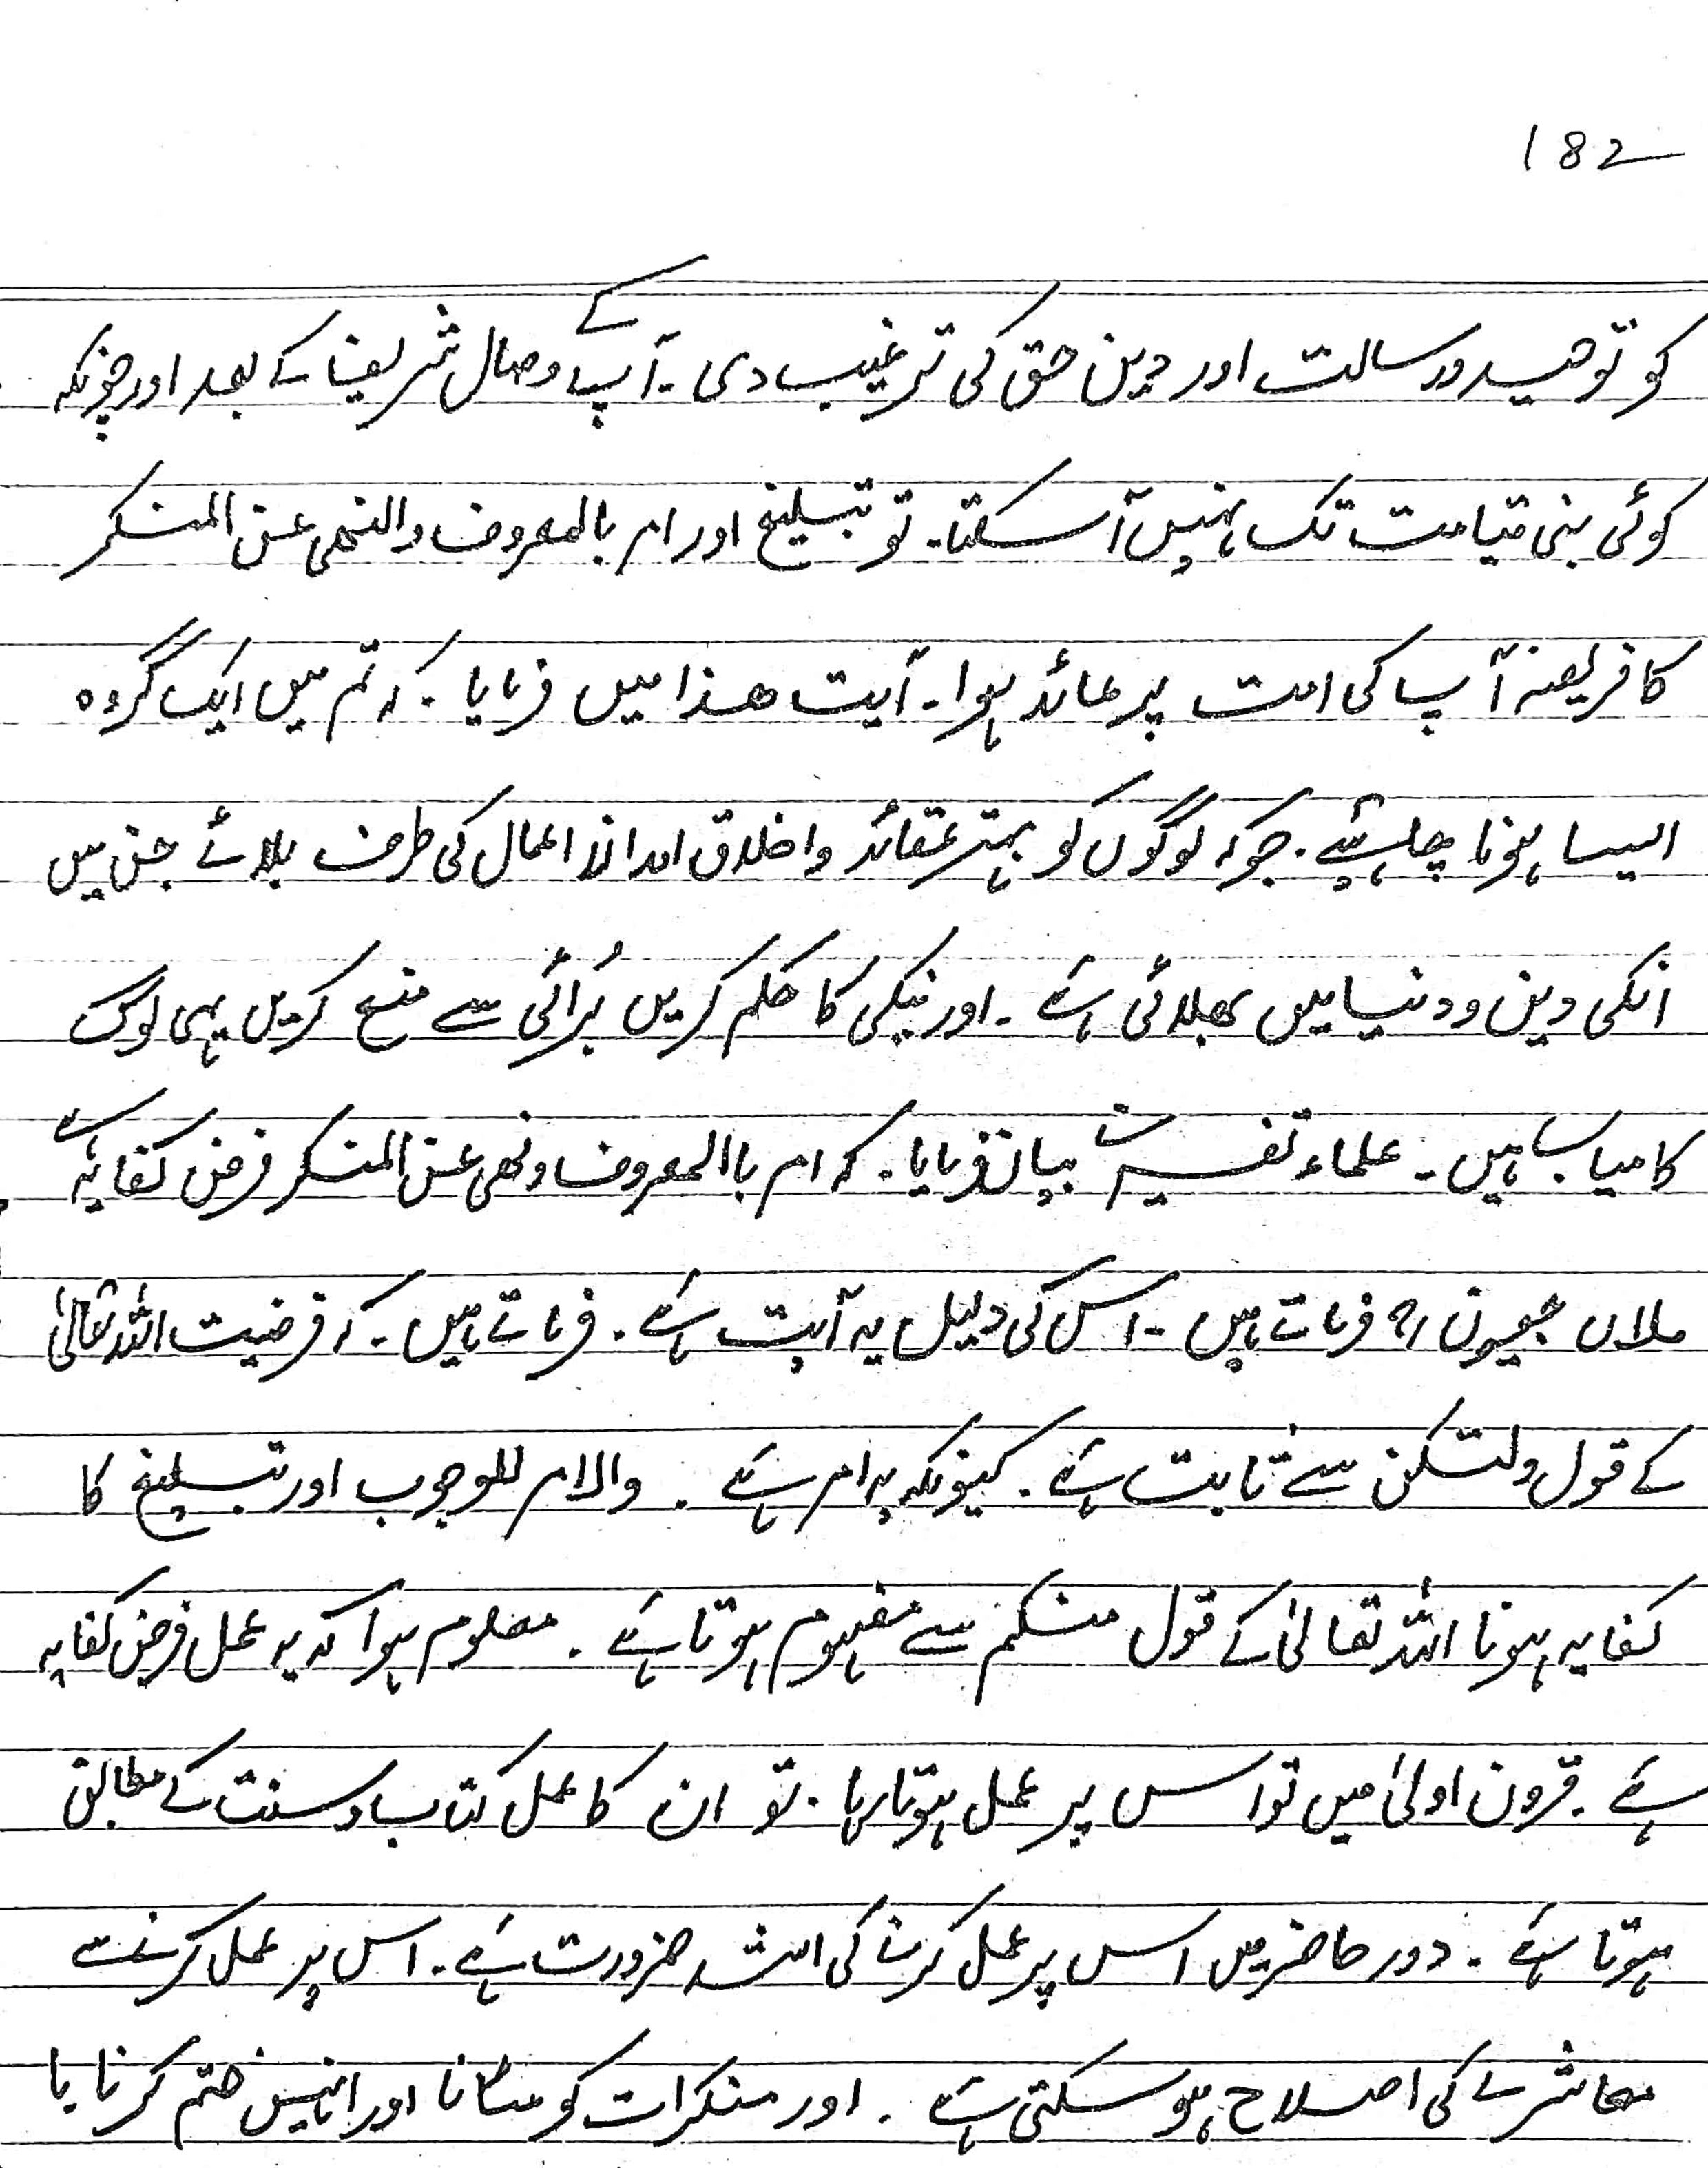 182
کو توحید ورسالت اور دین حق کی ترغیب دی۔ آپ کے وصال شریف کے بعد اور چونکہ
کوئی نبی قیامت تک نہیں آسکتا۔ تو تبلیغ اور امر بالمعروف والنھی عن المنکر
کا فریضہ آپ کی امت پر عائد ہوا۔ آیت ھذا میں فرمایا۔ کہ تم میں ایک گروہ
ایسا ہونا چاہئیے۔ جوکہ لوگوں کو بہتر عقائد واخلاق اعمال کی طرف بلائے جن میں
انکی دین ودنیا میں بھلائی ہے۔ اور نیکی کا حکم کریں بُرائی سے منع کریں یہی لوگ
کامیاب ہیں۔ علماء تفسیر نے بیان فرمایا۔ کہ امر باالمعروف ونھی عن المنکر فرض کفایہ ہے
ملاں جیون رح فرماتے ہیں۔ اس کی دلیل یہ آیت ہے۔ فرماتے ہیں۔ کہ فرضیت اللہ تعالیٰ
کے قول ولتکن سے ثابت ہے۔ کیونکہ یہ امر ہے۔ والامر للوجوب اور تبلیغ کا
کفایہ ہونا اللہ تعالیٰ کے قول منکم سے مفہوم ہوتا ہے۔ معلوم ہوا کہ یہ عمل فرض کفایہ
ہے۔ قرون اولیٰ میں تو اس پر عمل ہوتا رہا۔ تو ان کا عمل کتاب وسنت کے مطابق
ہوتا ہے۔ دور حاضر میں اس پر عمل کرنے کی اشد ضرورت ہے۔ اس پر عمل کرنے سے
معاشرے کی اصلاح ہوسکتی ہے۔ اور منکرات کو مٹانا اور انہیں ختم کرنا یا